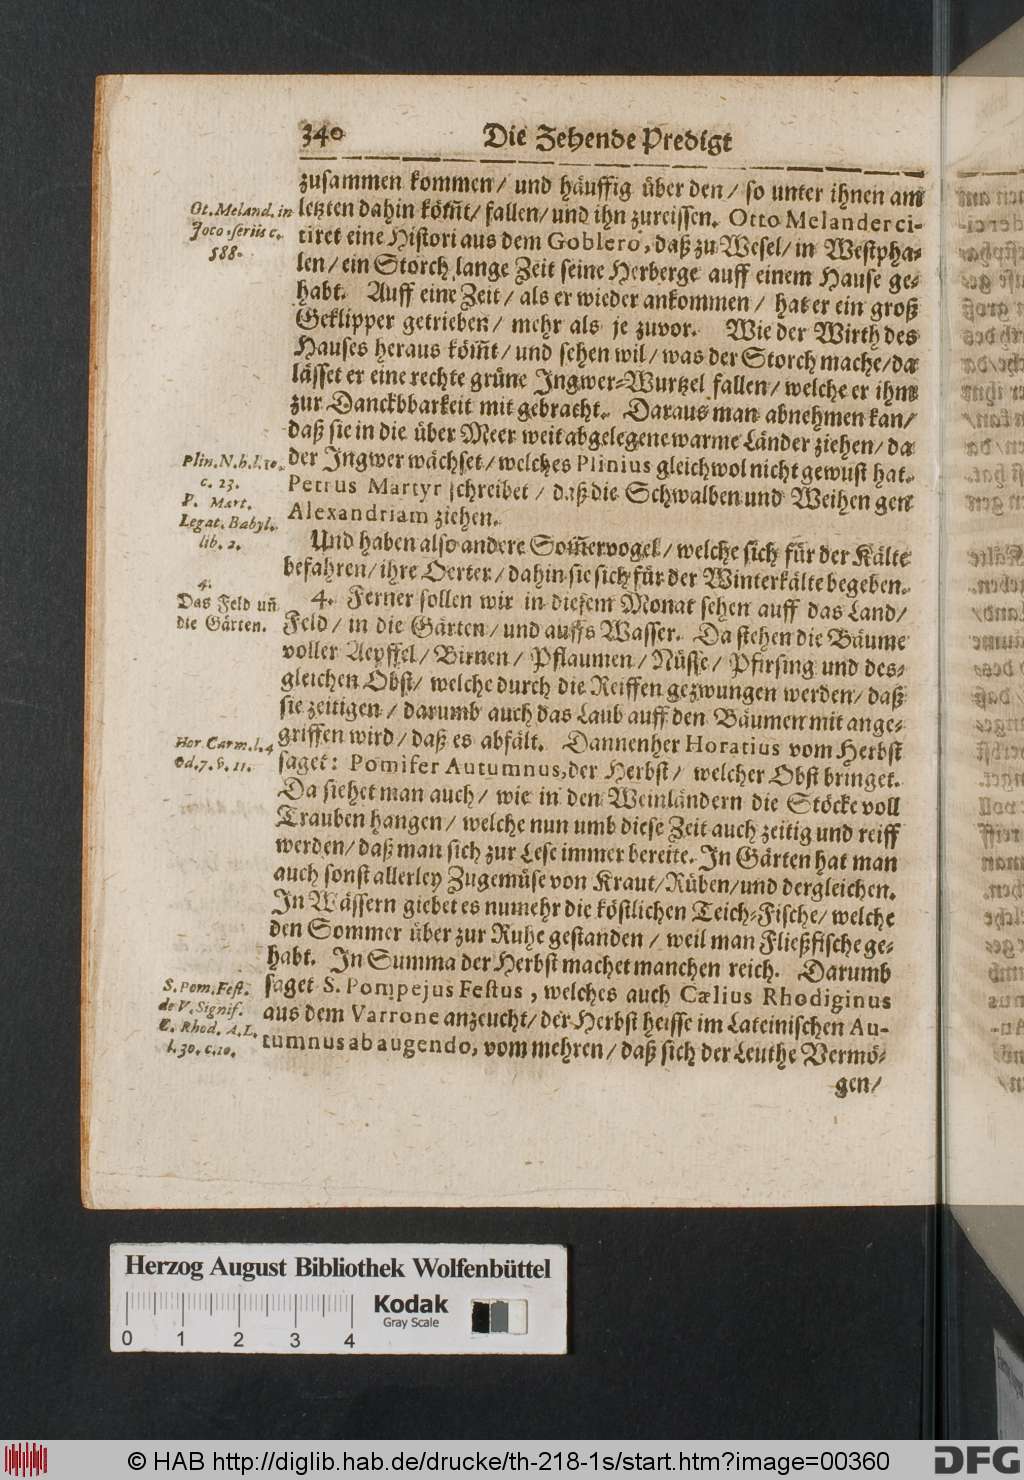 340 Die Zehende Predigt
zusammen kommen/ und häuffig über den/ so unter ihnen am
letzten dahin kömt/ fallen/ und ihn zureissen. Otto Melander ci-
tiret eine Histori aus dem Goblero, daß zu Wesel/ in Westpha-
len/ ein Storch lange Zeit seine Herberge auff einem Hause ge-
habt. Auff eine Zeit/ als er wieder ankommen/ hat er ein groß
Geklipper getrieben/ mehr als je zuvor. Wie der Wirth des
Hauses heraus köm̃t/ und sehen wil/ was der Storch mache/ da
lässet er eine rechte grüne Ingwer-Wurtzel fallen/ welche er ihm
zur Danckbbarkeit mit gebracht. Daraus man abnehmen kan/
daß sie in die über Meer weit abgelegene warme Länder ziehen/ da
der Ingwer wächset/ welches Plinius gleichwol nicht gewust hat.
Petrus Martyr schreibet/ daß die Schwalben und Weihen gen
Alexandriam ziehen.
Und haben also andere Som̃ervogel/ welche sich für der Kälte
befahren/ ihre Oerter/ dahin sie sich für der Winterkälte begeben.
4. Ferner sollen wir in diesem Monat sehen auff das Land/
Feld/ in die Gärten/ und auffs Wasser. Da stehen die Bäume
voller Aepffel/ Birnen/ Pflaumen/ Nüsse/ Pfirsing und des-
gleichen Obst/ welche durch die Reiffen gezwungen werden/ daß
sie zeitigen/ darumb auch das Laub auff den Bäumen mit ange-
griffen wird/ daß es abfält. Dannenher Horatius vom Herbst
saget: Pomifer Autumnus, der Herbst/ welcher Obst bringet.
Da siehet man auch/ wie in den Weinländern die Stöcke voll
Trauben hangen/ welche nun umb diese Zeit auch zeitig und reiff
werden/ daß man sich zur Lese immer bereite. In Gärten hat man
auch sonst allerley Zugemüse von Kraut/ Rüben/ und dergleichen.
In Wässern giebet es numehr die köstlichen Teich-Fische/ welche
den Sommer über zur Ruhe gestanden/ weil man Fließfische ge-
habt. In Summa der Herbst machet manchen reich. Darumb
saget S. Pompejus Festus, welches auch Cælius Rhodiginus
aus dem Varrone anzeucht/ der Herbst heisse im Lateinischen Au-
tumnus ab augendo, vom mehren/ daß sich der Leuthe Vermö-
gen/
Ot. Meland. in
Joco-seriis c.
588.
Plin. N. h. l. 10.
c. 23.
P. Mart.
Legat. Babyl.
lib. 2.
4.
Das Feld uñ
die Gärten.
Hor. Carm. l. 4
Od. 7. v. 11.
S. Pom. Fest.
de V. Signif.
C. Rhod. A. L.
l. 30. c. 10.
Herzog August Bibliothek Wolfenbüttel
Kodak
Gray Scale
0 1 2 3 4
© HAB http://diglib.hab.de/drucke/th-218-1s/start.htm?image=00360
DFG